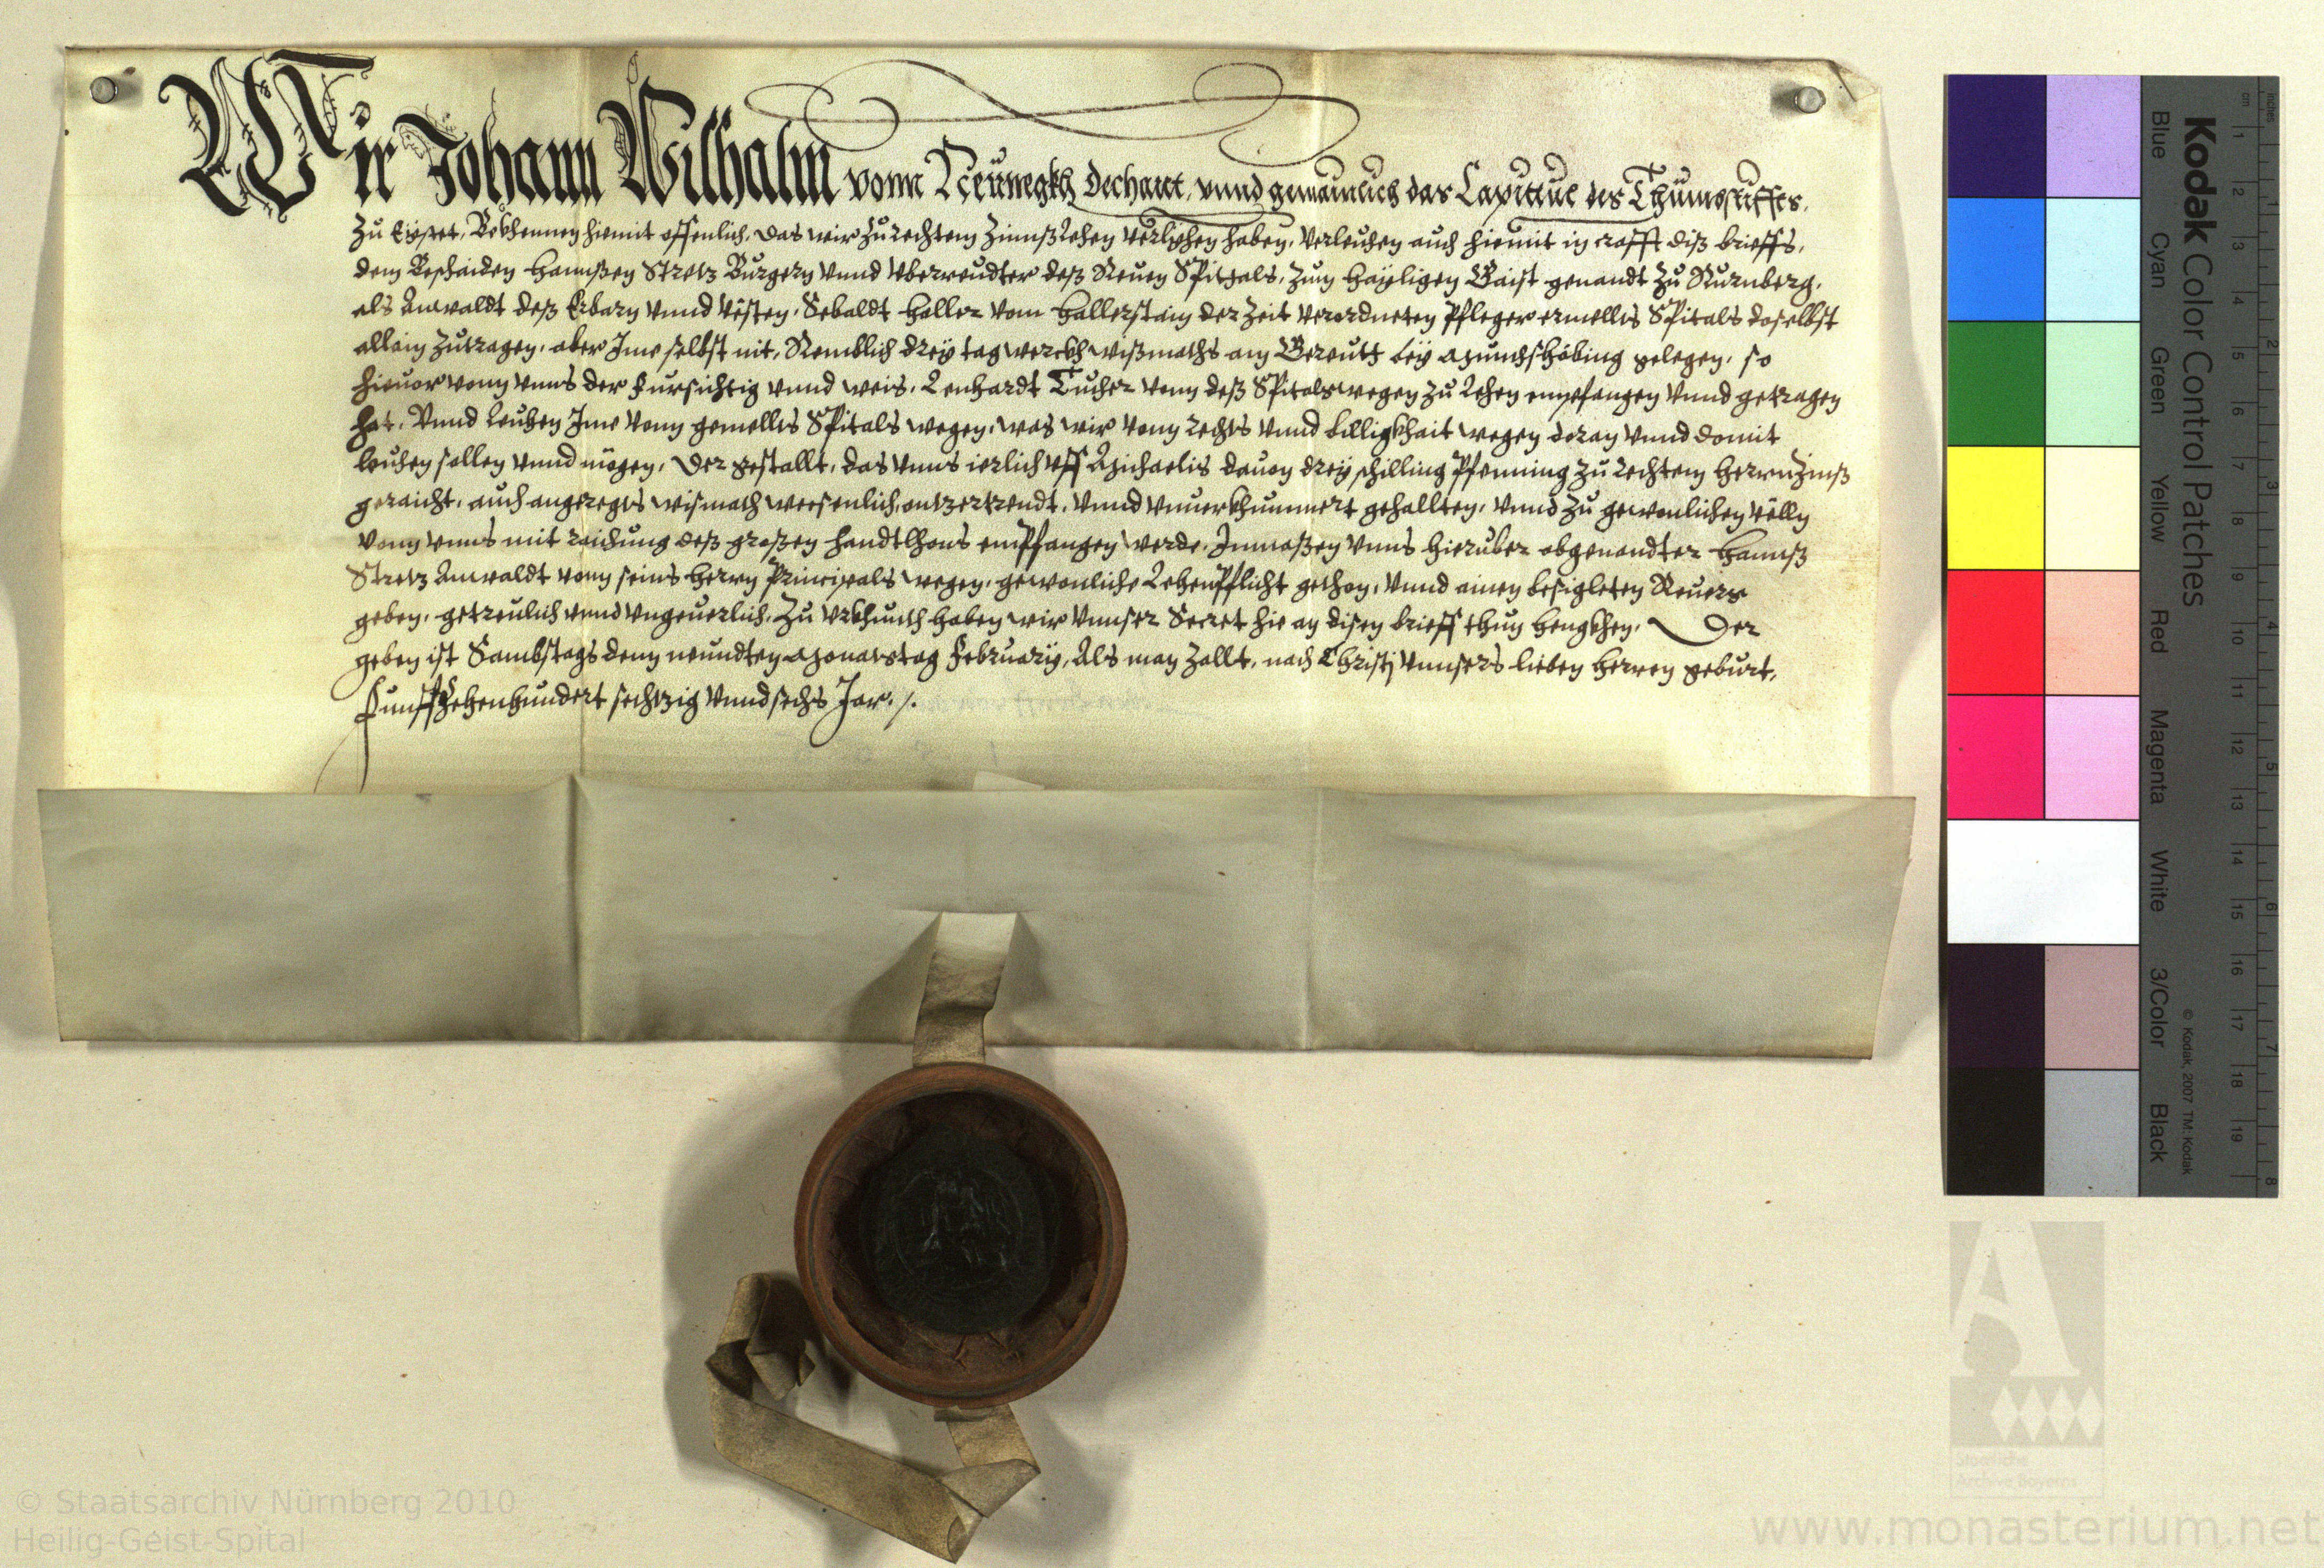 Wir Johann Wilhalm vonn Neunegkh Dechant, vnnd gemainlich das Capittul des Thumbstiffts,
Zu Eystet, Bekhennen hiemit offenlich, das wir Zu rechtem Zinnßlehen verlyhen haben, Verleuhen auch hiemit in crafft diß brieffs,
dem Beschaiden Hannßen Stretz Burgern vnnd vberreudter deß Neuen Spittals, Zum Hayligen Gaist genandt Zu Nurnberg,
als Anwaldt deß Erbarn vnnd Vesten, Sebaldt Haller vom Hallerstain der Zeit verordneten Pfleger ermellts Spitals doselbst
allain Zutragen, aber Ime selbst nit, Nemblich drey tagwerckh wißmaths am Gereutt bey Munchshöbing gelegen, so
hieuor vonn vnns der Fursichtig vnnd weis, Lenhardt Tucher vonn deß Spitals wegen zu Lehen empfangen vnnd getragen
hat, Vnnd Leuhen Ime vonn gemellts Spitals wegen, was wir vonn rechts vnnd billigkhait wegen doran vnnd domit
leuhen sollen vnnd mögen, Der gestallt, das vnns ierlich vff Michaelis dauon drey schilling Pfenning zu rechtem herrnZinß
geraicht, auch angeregts wismath weesenlich, ontzertrendt, vnnd vnuerkhummert gehallten, vnnd Zu gewonlichen völln
vonn vnns mit raichung deß großen handtlhons empfangen werde, Inmaßen vnns hieruber obgenandter Hannß
Stretz Anwaldt vonn seins herrn Principals wegen, gewonliche Lehenpflicht gethon, vnnd ainen besigleten Reuers
geben, getreulich vnnd vngeuerlich, Zu vrkhundt haben wir vnnser Secret hie an disen brieff thun hengkhen, Der
geben ist Sambstags denn neundten Monatstag February, Als man Zallt, nach Christj vnnsers lieben herren geburt,
Funffzehenhundert sechtzig vnnd sechs Jar. /.
Kodak Color Control Patches
Blue Cyan Green Yellow Red Magenta White 3/Color Black
© Kodak, 2007 TM: Kodak
inches 1 2 3 4 5 6 7 8
cm 1 2 3 4 5 6 7 8 9 10 11 12 13 14 15 16 17 18 19
Staatliche
Archive Bayerns
© Staatsarchiv Nürnberg 2010
Heilig-Geist-Spital
www.monasterium.net